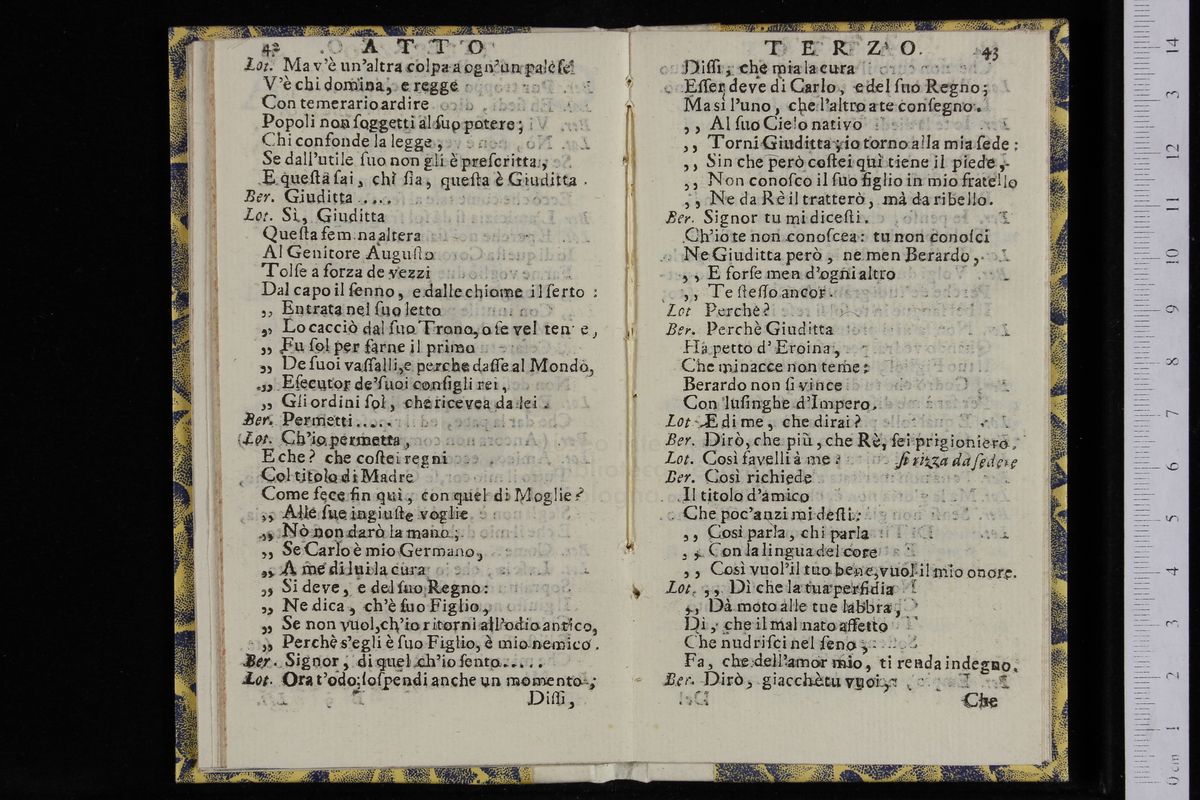 42 ATTO
Lot. Ma v'è un'altra colpa a ogn'un palese
V'è chi domina, e regge
Con temerario ardire
Popoli non soggetti al suo potere;
Chi confonde la legge,
Se dall'utile suo non gli è prescritta,
E questa sai, chi sia, questa è Giuditta.
Ber. Giuditta ....
Lot. Sì, Giuditta
Questa femina altera
Al Genitore Augusto
Tolse a forza de vezzi
Dal capo il senno, e dalle chiome il serto:
,, Entrata nel suo letto
,, Lo cacciò dal suo Trono, o se vel tenne,
,, Fu sol per farne il primo
,, De suoi vassalli, e perche dasse al Mondo,
,, Esecutor de' suoi consigli rei,
,, Gli ordini sol, che ricevea da lei.
Ber. Permetti.....
Lot. Ch'io permetta,
E che? che costei regni
Col titolo di Madre
Come fece fin quì, con quel di Moglie?
,, Alle sue ingiuste voglie
,, Nò non darò la mano;
,, Se Carlo è mio Germano,
,, A me di lui la cura
,, Si deve, e del suo Regno:
,, Ne dica, ch'è suo Figlio,
,, Se non vuol, ch'io ritorni all'odio antico,
,, Perchè s'egli è suo Figlio, è mio nemico.
Ber. Signor, di quel ch'io sento.....
Lot. Or a t'odo; sospendi anche un momento;
Dissi,
TERZO. 43
Dissi, che mia la cura
Esser deve di Carlo, e del suo Regno;
Ma sì l'uno, che l'altro a te consegno.
,, Al suo Cielo nativo
,, Torni Giuditta, io torno alla mia sede:
,, Sin che però costei quì tiene il piede,
,, Non conosco il suo figlio in mio fratello
,, Ne da Rè il tratterò, mà da ribello.
Ber. Signor tu mi dicesti.
Ch'io te non conoscea: tu non conosci
Ne Giuditta però, ne men Berardo,
,, E forse men d'ogni altro
,, Te stesso ancor.
Lot Perchè?
Ber. Perchè Giuditta
Hà petto d'Eroina,
Che minacce non teme:
Berardo non si vince
Con lusinghe d'Impero.
Lot E di me, che dirai?
Ber. Dirò, che più, che Rè, sei prigioniero.
Lot. Così favelli à me? si rizza da sedere
Ber. Così richiede
Il titolo d'amico
Che poc'anzi mi desti:
,, Così parla, chi parla
,, Con la lingua del core
,, Così vuol'il tuo bene, vuol'il mio onore.
Lot. ,, Dì che la tua perfidia
,, Dà moto alle tue labbra,
Di, che il mal nato affetto
Che nudrisci nel seno,
Fa, che dell'amor mio, ti renda indegno.
Ber. Dirò, giacchè tu vuoi,
Che